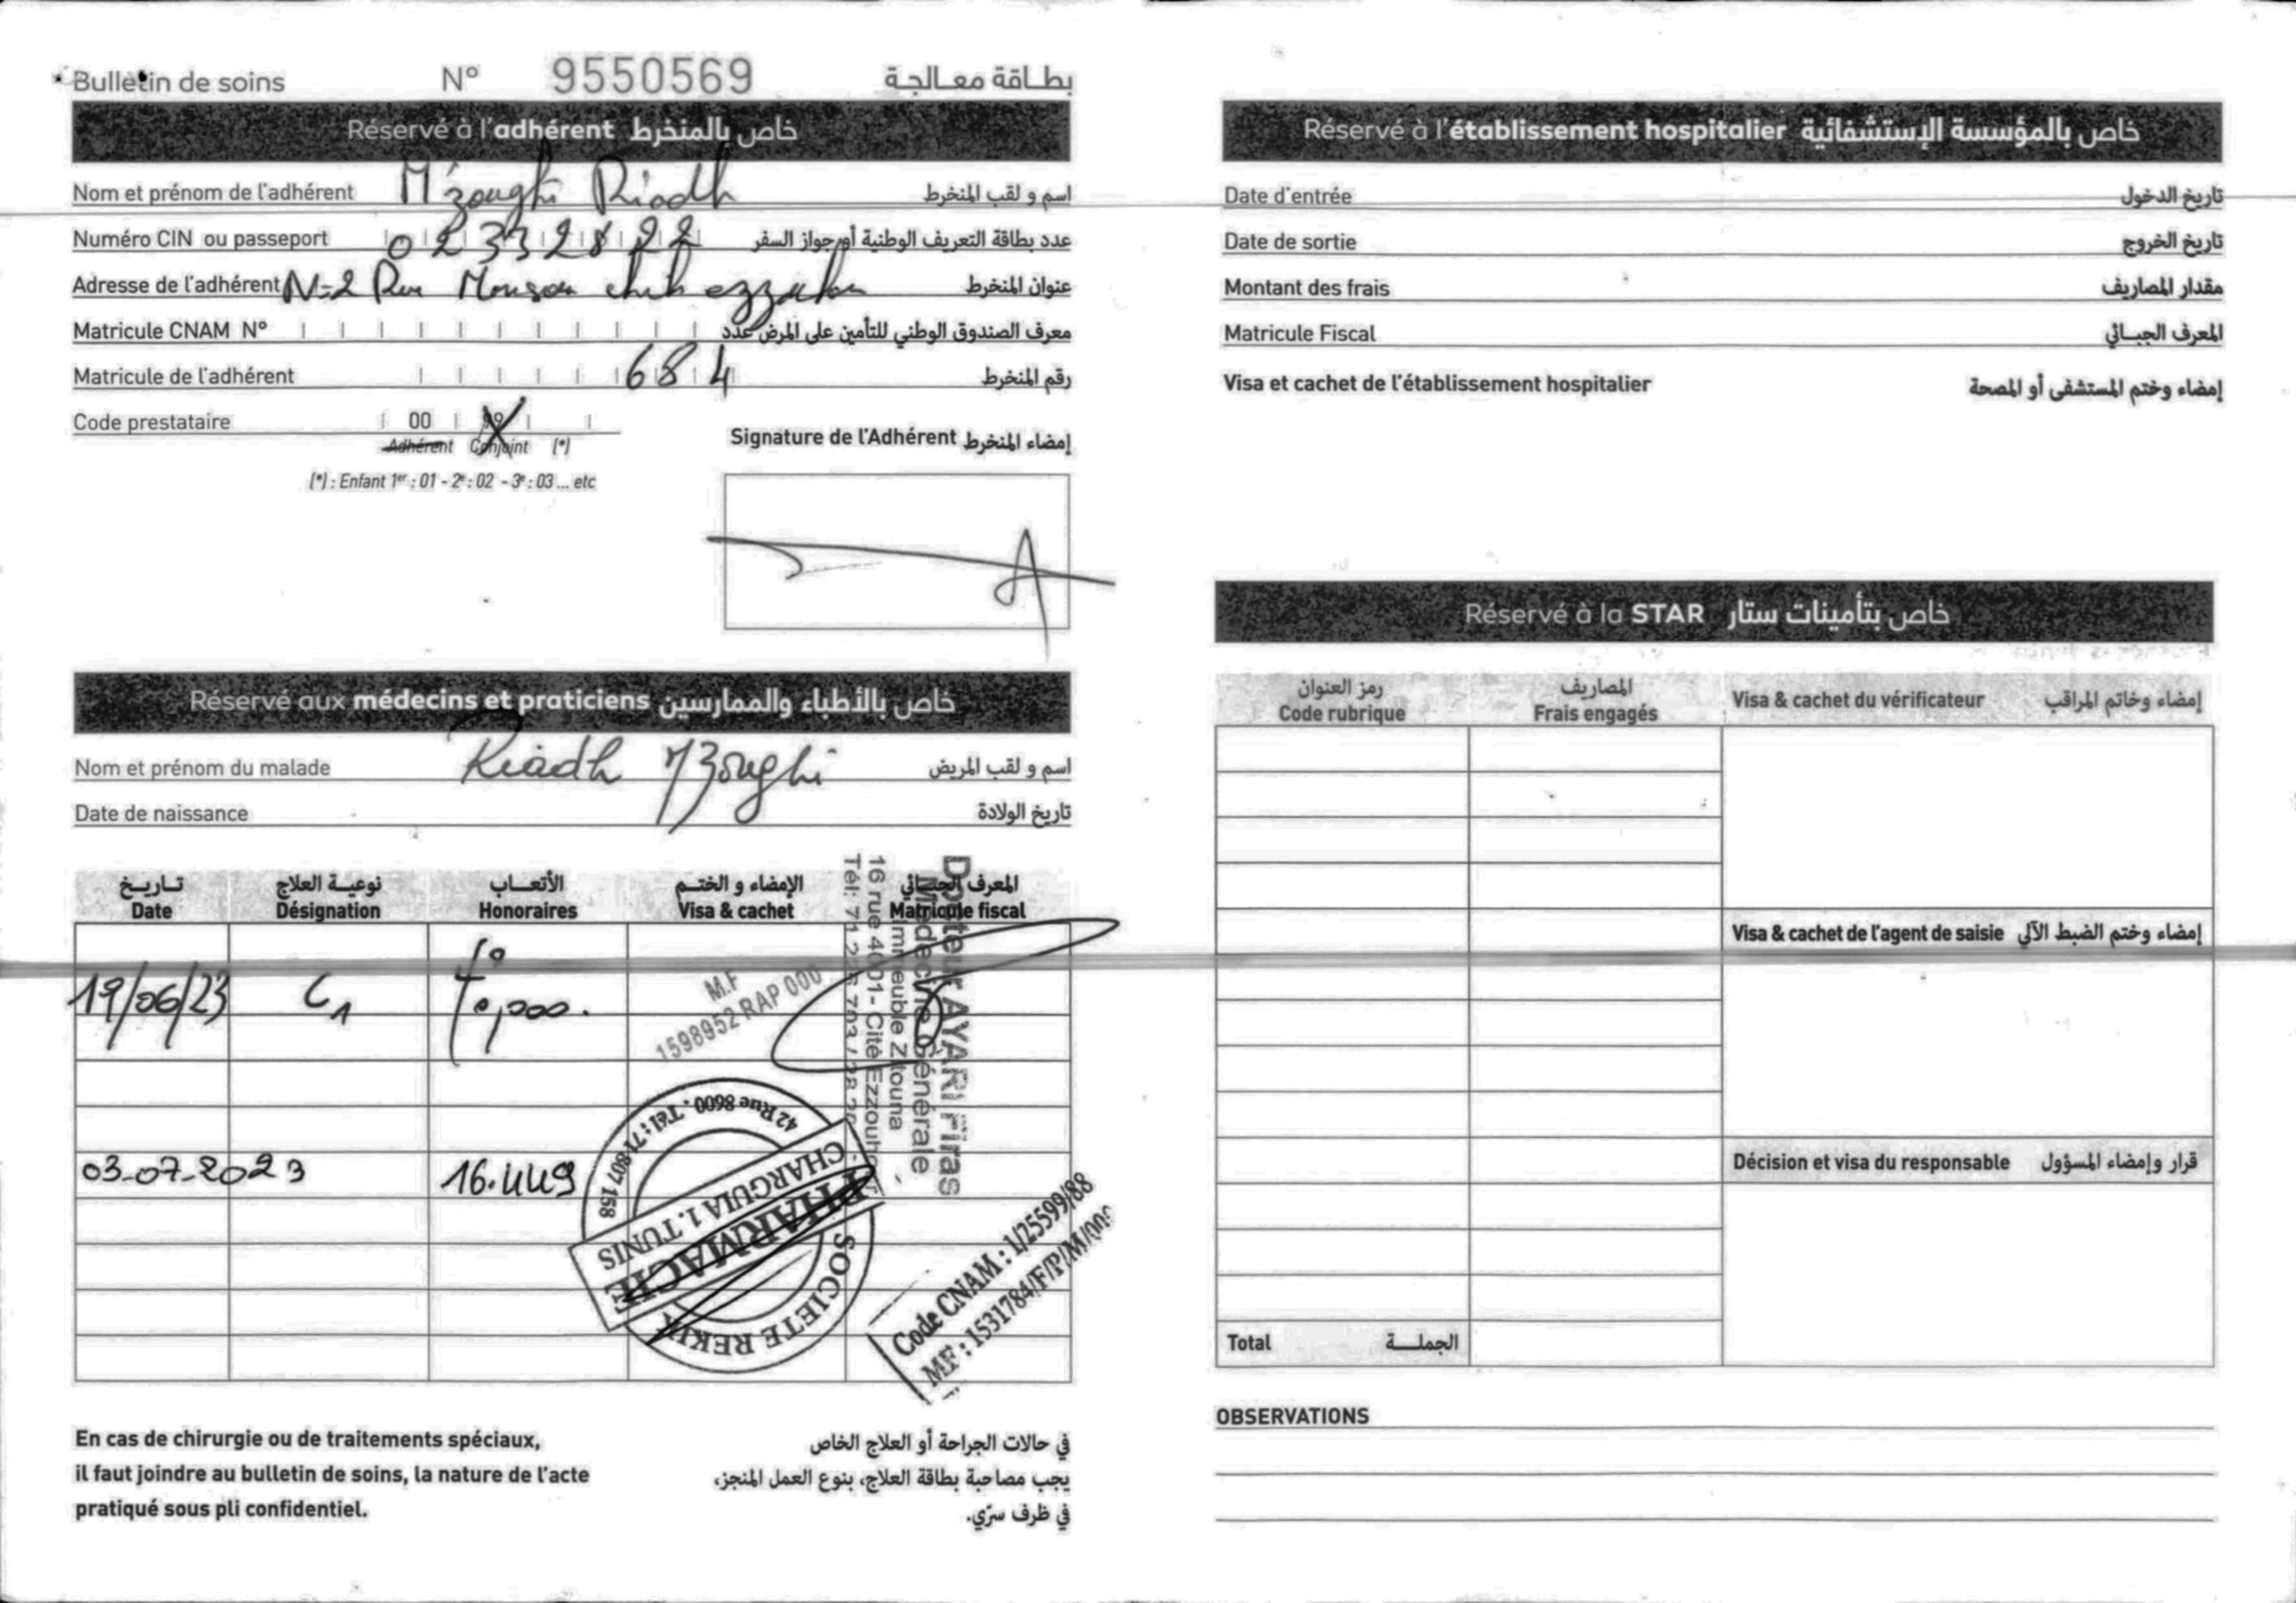 Bulletin de soins N° 9550569 بطاقة معالجة
Réservé à l'adhérent خاص بالمنخرط
Nom et prénom de l'adhérent M'zoughi Riadh اسم و لقب المنخرط
Numéro CIN ou passeport عدد بطاقة التعريف الوطنية أو جواز السفر
Adresse de l'adhérent N=2 Rue ezzahra عنوان المنخرط
Matricule CNAM N° معرف الصندوق الوطني للتأمين على المرض عدد
Matricule de l'adhérent 684 رقم المنخرط
Code prestataire 00 99
Adhérent Conjoint (*)
(*) : Enfant 1er : 01 - 2e : 02 - 3e : 03 ... etc
Signature de l'Adhérent إمضاء المنخرط
Réservé aux médecins et praticiens خاص بالأطباء والممارسين
Nom et prénom du malade Riadh Mzoughi اسم و لقب المريض
Date de naissance تاريخ الولادة
تـاريـخ نوعيـة العلاج الأتعـاب الإمضاء و الختـم المعرف الجبـائي
Date Désignation Honoraires Visa & cachet Matricule fiscal
19/06/23 C1
M.F
1598952 RAP 000
Docteur AYARI Firas
Médecine Générale
Immeuble Zitouna
16 rue 4001- Cité Ezzouhour
03-07-2023 16.449
42 Rue 8600 - Tél : 71 807 158
CHARGUIA 1. TUNIS
PHARMACIE
SOCIETE REKIK
Code CNAM : 1/25599/88
MF : 1531784/F/P/M/000
En cas de chirurgie ou de traitements spéciaux,
il faut joindre au bulletin de soins, la nature de l'acte
pratiqué sous pli confidentiel.
في حالات الجراحة أو العلاج الخاص
يجب مصاحبة بطاقة العلاج، بنوع العمل المنجز،
في ظرف سرّي.
Réservé à l'établissement hospitalier خاص بالمؤسسة الإستشفائية
Date d'entrée تاريخ الدخول
Date de sortie تاريخ الخروج
Montant des frais مقدار المصاريف
Matricule Fiscal المعرف الجبـائي
Visa et cachet de l'établissement hospitalier إمضاء وختم المستشفى أو المصحة
Réservé à la STAR خاص بتأمينات ستار
رمز العنوان المصاريف
Code rubrique Frais engagés Visa & cachet du vérificateur إمضاء وخاتم المراقب
Visa & cachet de l'agent de saisie إمضاء وختم الضبط الآلي
Décision et visa du responsable قرار وإمضاء المسؤول
Total الجملـــة
OBSERVATIONS